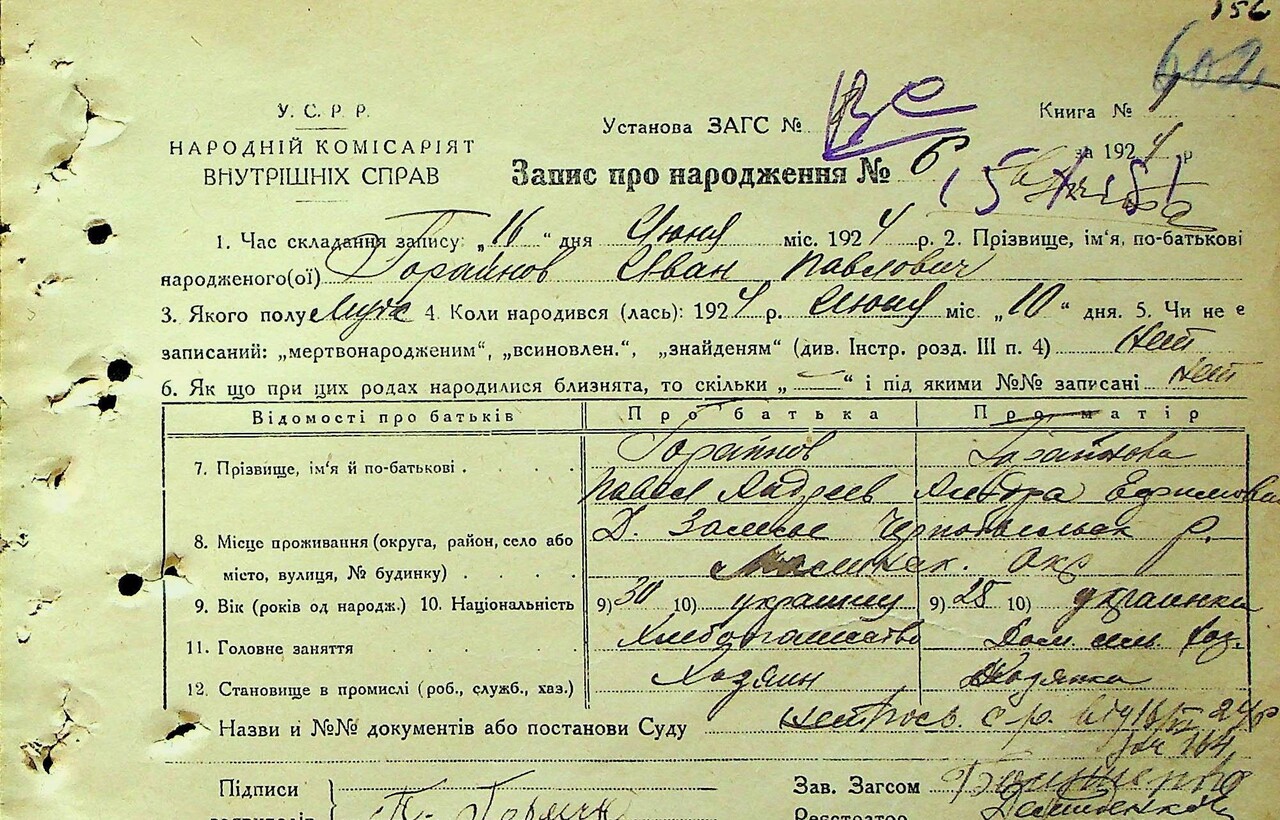 156
602
У. С. Р. Р.
НАРОДНІЙ КОМІСАРІЯТ
ВНУТРІШНІХ СПРАВ
Установа ЗАГС №
Книга № 1
за 1924 р
Запис про народження № 6
1. Час складання запису: „16“ дня Июня міс. 1924 р. 2. Прізвище, ім'я, по-батькові
народженого(ої) Горайнов Иван Павлович
3. Якого полу Муж 4. Коли народився (лась): 1924 р. Июня міс. „10“ дня. 5. Чи не є
записаний: „мертвонародженим“, „всиновлен.“, „знайденям“ (див. Інстр. розд. III п. 4) Нет
6. Як що при цих родах народилися близнята, то скільки „—“ і під якими №№ записані Нет
Відомості про батьків Про батька Про матір
7. Прізвище, ім'я й по-батькові Горайнов Горайнова
Павел Андреев Ефимова
8. Місце проживання (округа, район, село або Д. Залесье р.
місто, вулиця, № будинку) Окр
9. Вік (років од народж.) 10. Національність 9) 30 10) украинец 9) 28 10) украинка
11. Головне заняття Хлебопашество Дом. хоз.
12. Становище в промислі (роб., служб., хаз.) Хозяин Хозяйка
Назви и №№ документів або постанови Суду
164
Підписи
Зав. Загсом
заявителів
Реєстратор